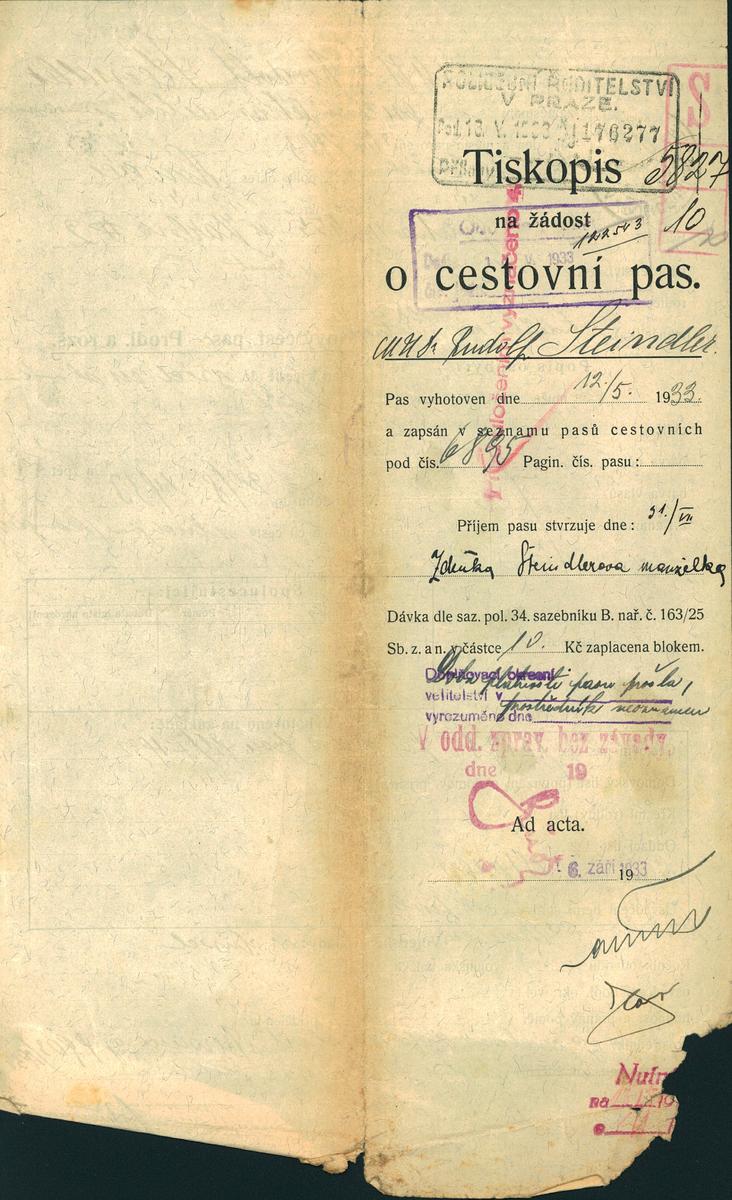 POLICEJNÍ ŘEDITELSTVÍ
V PRAZE.
176277
Tiskopis 5827
na žádost 10
o cestovní pas.
MUDr Rudolf Steindler.
Pas vyhotoven dne 12/5. 1933.
a zapsán v seznamu pasů cestovních
pod čís. 6895 Pagin. čís. pasu:
Příjem pasu stvrzuje dne: 31./VII
Zdeňka Steindlerova manželka
Dávka dle saz. pol. 34. sazebníku B. nař. č. 163/25
Sb. z. a n. v částce 10. Kč zaplacena blokem.
Doplňovací okresní
Doba platnosti pasu prošla,
velitelství v
prostředník neoznámen
vyrozuměno dne
V odd. zprav. bez závady.
dne 19
Ad acta.
6. září 1933
19
na 19